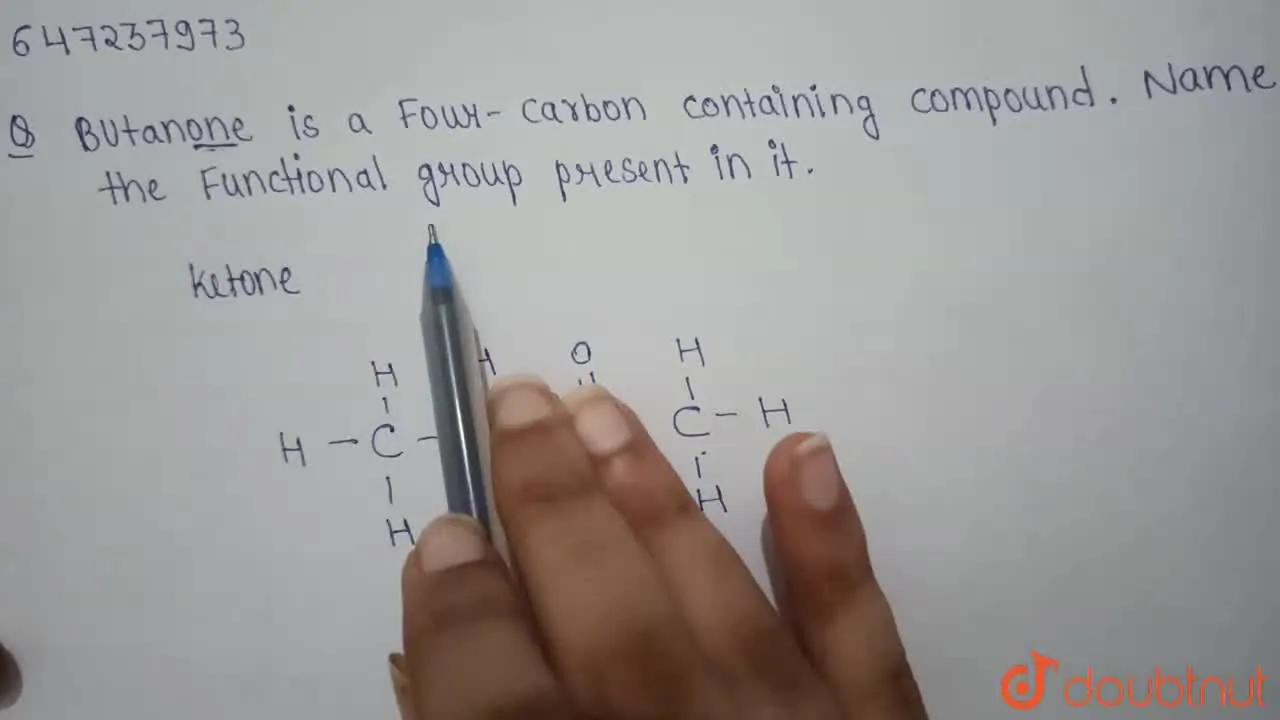 647237973
Q Butanone is a Four-carbon containing compound. Name
the Functional group present in it.
Ketone
H H O H
H - C - C - H
H H
doubtnut